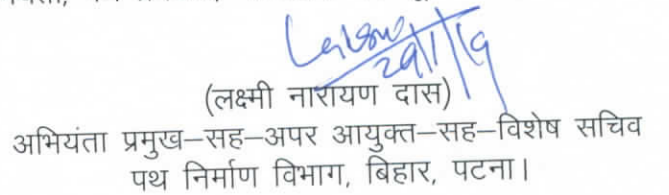 29/1/19
(लक्ष्मी नारायण दास)
अभियंता प्रमुख–सह–अपर आयुक्त–सह–विशेष सचिव
पथ निर्माण विभाग, बिहार, पटना।